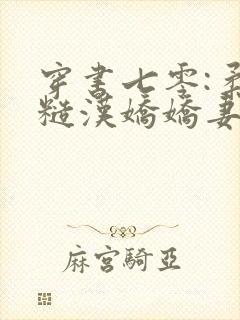 穿書七零:
糙漢嬌嬌妻
麻宮騎亞